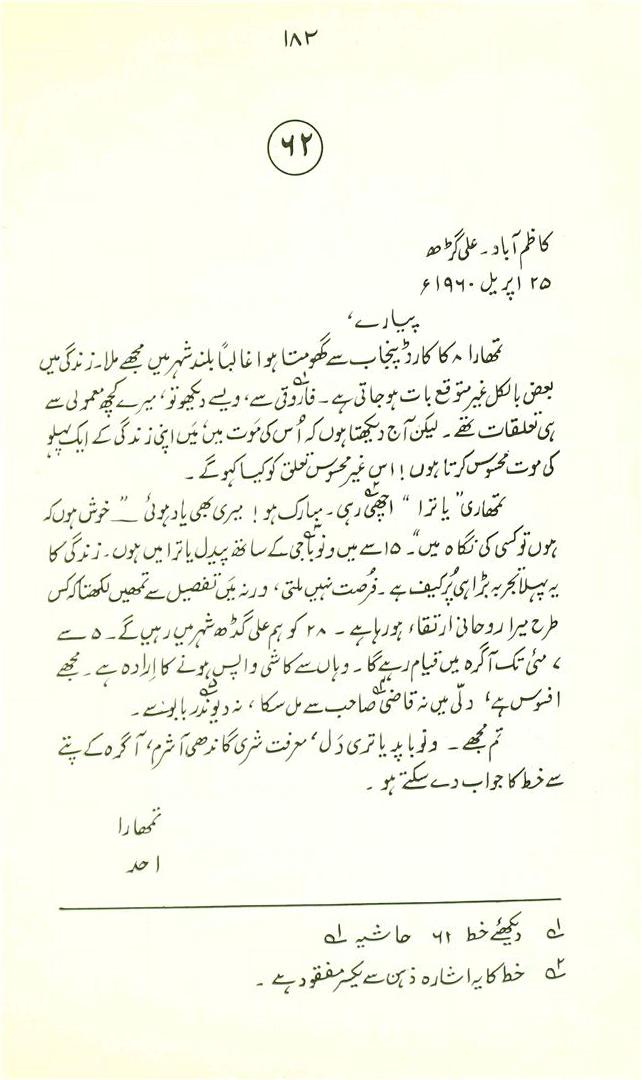 ۱۸۲
۶۲
کاظم آباد۔ علی گڑھ
۲۵ اپریل ۱۹۶۰ء
پیارے،
تمھارا ۸ کا کارڈ پنجاب سے گھومتا ہوا غالباً بلند شہر میں مجھے ملا۔ زندگی میں
بعض بالکل غیر متوقع بات ہو جاتی ہے۔ فاروقی۱؎ سے، ویسے دیکھو تو، میرے کچھ معمولی سے
ہی تعلقات تھے۔ لیکن آج دیکھتا ہوں کہ اُس کی موت میں، میں اپنی زندگی کے ایک پہلو
کی موت محسوس کرتا ہوں! اس غیر محسوس تعلق کو کیا کہو گے۔
تمھاری "یاترا" اچھی رہی۔ مبارک ہو! میری بھی یاد ہوئی — "خوش ہوں کہ
ہوں تو کسی کی نگاہ میں"۲؎۔ ۱۵ سے میں ونوباجی کے ساتھ پیدل یاترا میں ہوں۔ زندگی کا
یہ پہلا تجربہ بڑا ہی پُرکیف ہے۔ فرصت نہیں ملتی، ورنہ میں تفصیل سے تمھیں لکھتا کہ کس
طرح میرا روحانی ارتقاء ہو رہا ہے۔ ۲۸ کو ہم علی گڈھ شہر میں رہیں گے۔ ۵ سے
۷ مئی تک آگرہ میں قیام رہے گا۔ وہاں سے کاشی واپس ہونے کا اِرادہ ہے۔ مجھے
افسوس ہے، دلّی میں نہ قاضی۳؎ صاحب سے مل سکا، نہ دیوندر۴؎ بابو سے۔
تم مجھے۔ ونوبا پد یاتری دَل، معرفت شری گاندھی آشرم، آگرہ کے پتے
سے خط کا جواب دے سکتے ہو۔
تمھارا
احد
۱؎ دیکھئے خط ۶۱ حاشیہ ۱؎
۲؎ خط کا یہ اشارہ ذہن سے یکسر مفقود ہے۔